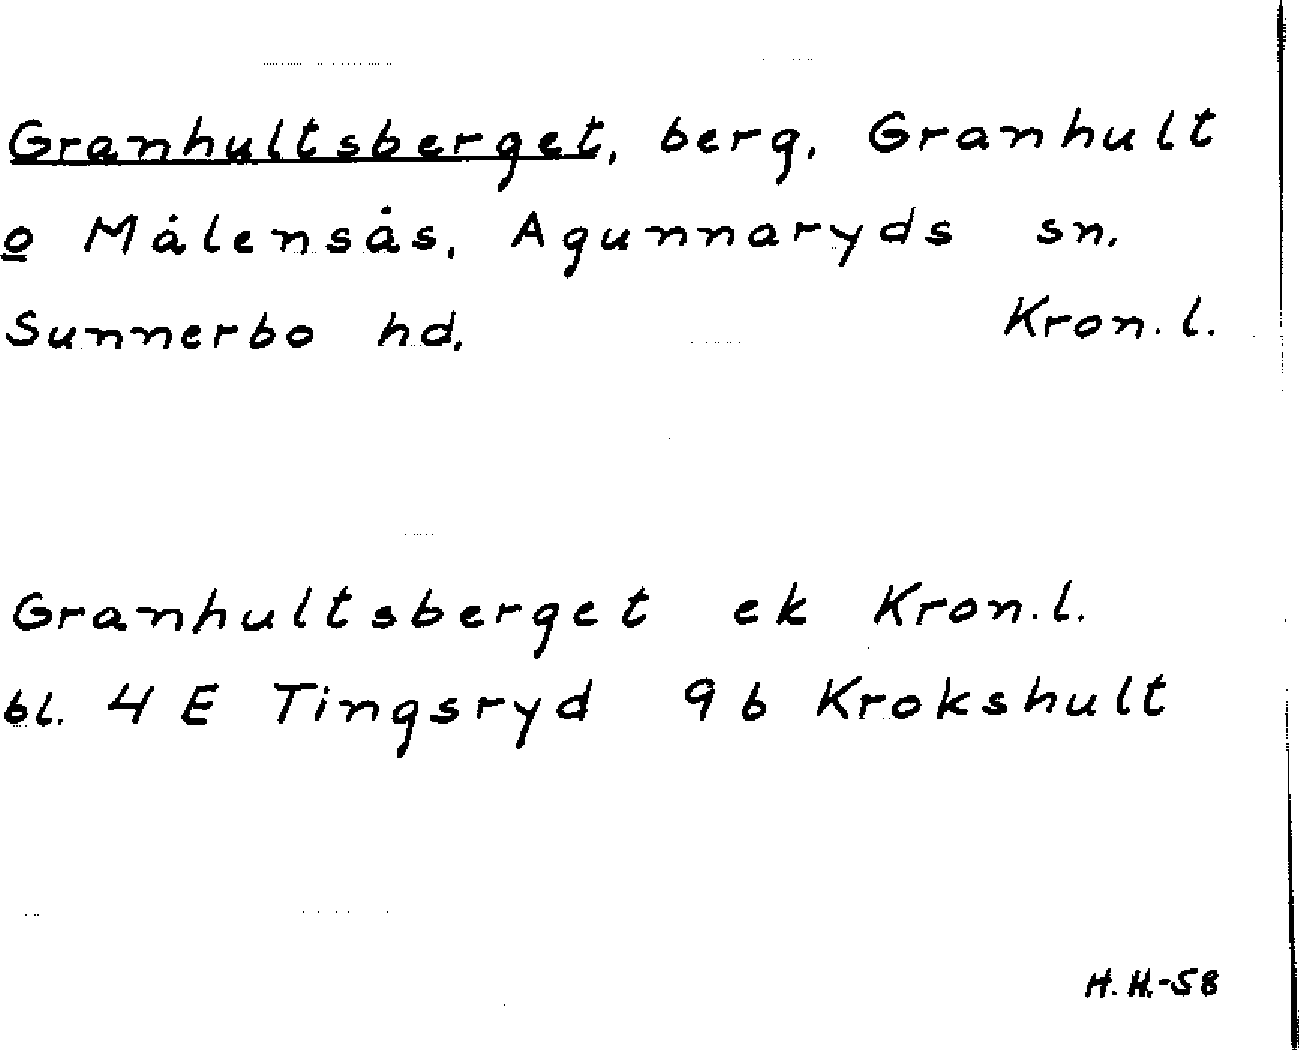 Granhultsberget, berg, Granhult
o Målensås, Agunnaryds sn.
Sunnerbo hd. Kron. l.
Granhultsberget ek Kron. l.
bl. 4 E Tingsryd 9 b Krokshult
H. H.-58